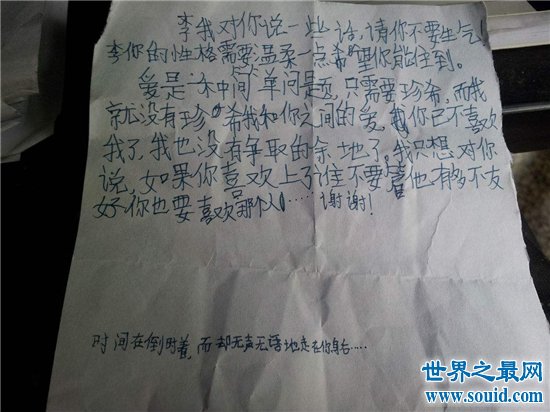 李我对你说一些话,请你不要生气
李你的性格需要温柔一点希望你能注到。
爱是一种简单问是题,只需要珍希,而我
就没有珍希我和你之间的爱,你已不喜欢
我了,我也没有争取的余地了,我只想对你
说,如果你喜欢上了谁不要管他有多不友
好你也要喜欢那个人……谢谢!
时间在倒时着,而却无声无语地走在你身后……
世界之最网
www.souid.com